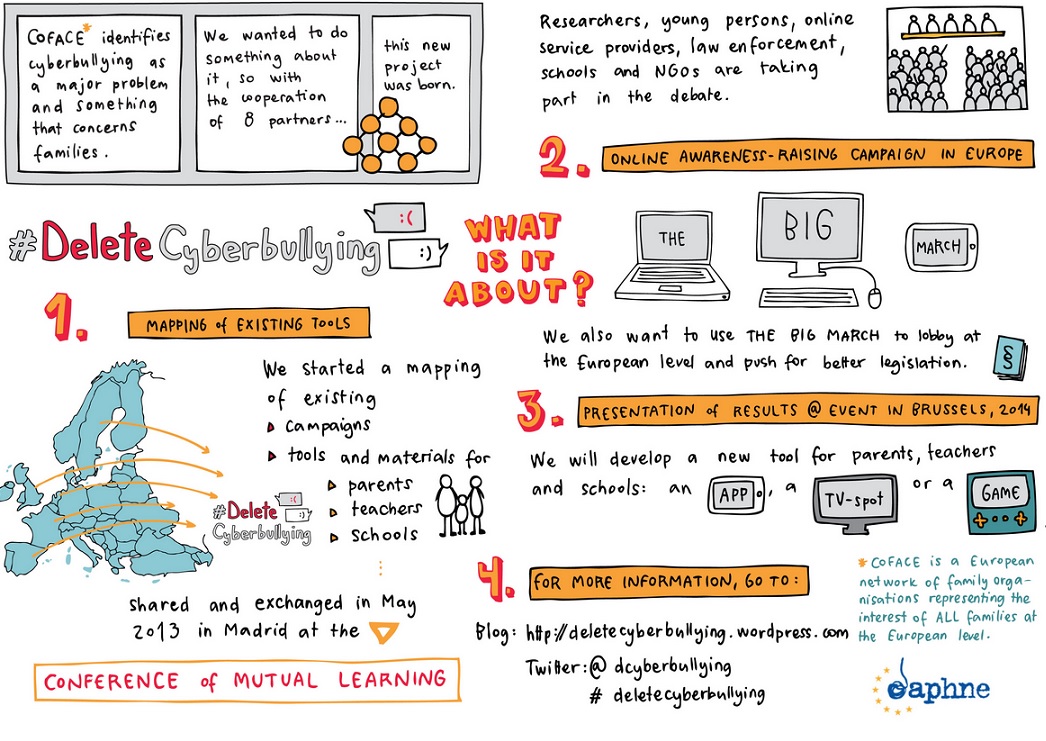 COFACE* identifies
cyberbullying as
a major problem
and something
that concerns
families.
We wanted to do
something about
it, so with
the cooperation
of 8 partners...
this new
project
was born.
#DeleteCyberbullying
:(
:)
WHAT
IS IT
ABOUT?
1.
MAPPING of EXISTING TOOLS
We started a mapping
of existing
campaigns
tools and materials for
parents
teachers
schools
#Delete
Cyberbullying
:(
:)
shared and exchanged in May
2013 in Madrid at the
CONFERENCE of MUTUAL LEARNING
Researchers, young persons, online
service providers, law enforcement,
schools and NGOs are taking
part in the debate.
2.
ONLINE AWARENESS-RAISING CAMPAIGN IN EUROPE
THE
BIG
MARCH
We also want to use THE BIG MARCH to lobby at
the European level and push for better legislation.
§
3.
PRESENTATION of RESULTS @ EVENT IN BRUSSELS, 2014
We will develop a new tool for parents, teachers
and schools: an APP, a TV-spot or a GAME
4.
FOR MORE INFORMATION, GO TO:
Blog: http://deletecyberbullying.wordpress.com
Twitter: @ dcyberbullying
# deletecyberbullying
* COFACE is a European
network of family orga-
nisations representing the
interest of ALL families at
the European level.
daphne